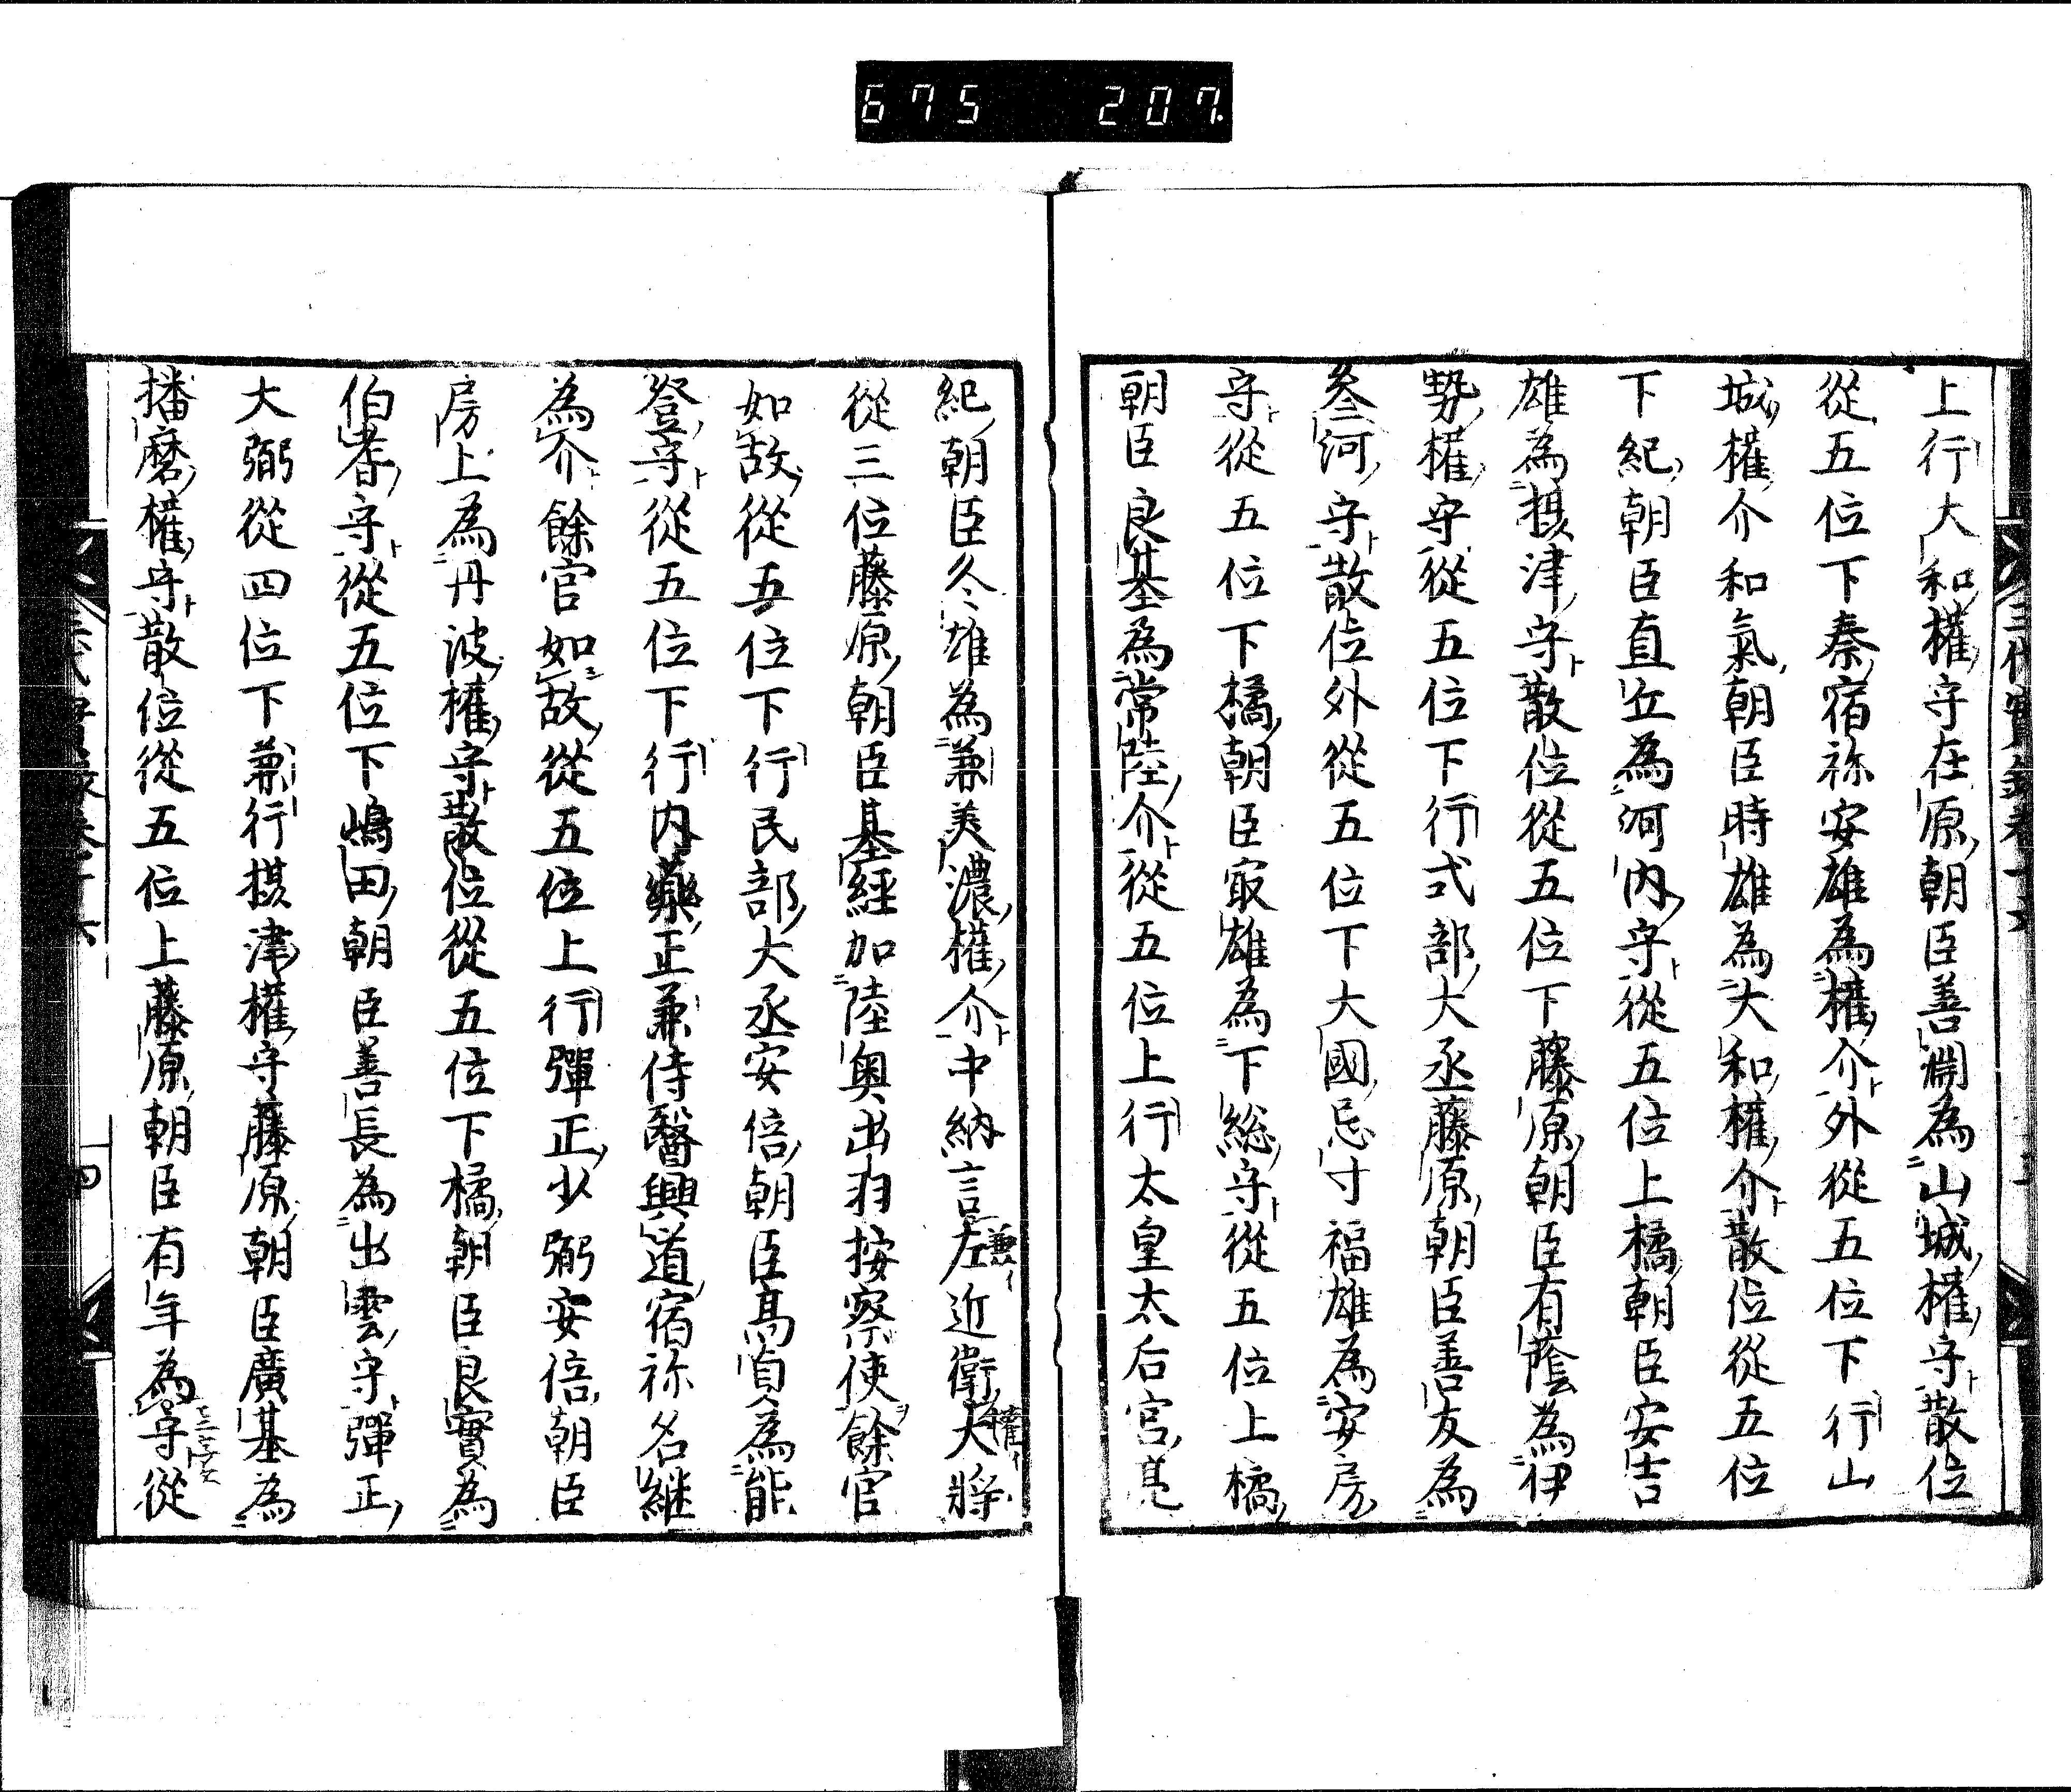 675 207.
上行大和權守在原朝臣善淵為山城權守散位
從五位下秦宿祢安雄為權介外從五位下行山
城權介和氣朝臣時雄為大和權介散位從五位
下紀朝臣直丘為河内守從五位上橘朝臣安吉
雄為摂津守散位從五位下藤原朝臣有蔭為伊
勢權守從五位下行式部大丞藤原朝臣善友為
叄河守散位外從五位下大國忌寸福雄為安房
守從五位下橘朝臣冣雄為下総守從五位上橘
朝臣良基為常陸介從五位上行太皇太后宮亮
紀朝臣冬雄為兼美濃權介中納言左近衛大將
從三位藤原朝臣基經加陸奥出羽按察使餘官
如故從五位下行民部大丞安倍朝臣高貞為能
登守從五位下行内藥正兼侍醫興道宿祢名継
為介餘官如故從五位上行彈正少弼安倍朝臣
房上為丹波權守散位從五位下橘朝臣良實為
伯耆守從五位下嶋田朝臣善長為出雲守彈正
大弼從四位下兼行摂津權守藤原朝臣廣基為
播磨權守散位從五位上藤原朝臣有年為守從
三代實録卷十六
四